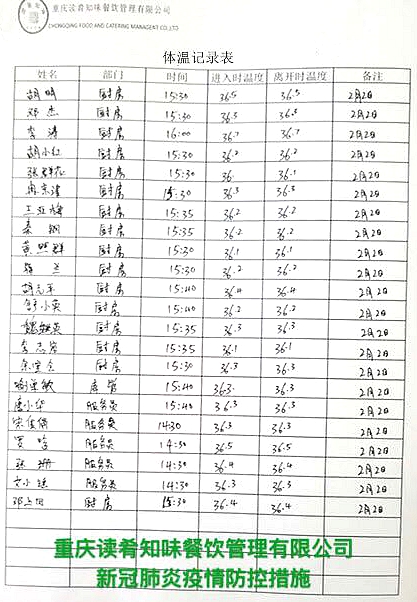 重庆读肴知味餐饮管理有限公司
CHONGQING FOOD AND CATERING MANAGEMENT CO.,LTD
体温记录表
姓名 部门 时间 进入时温度 离开时温度 备注
胡明 厨房 15:30 36.5 36.5 2月2日
邓杰 厨房 15:30 36.3 36.3 2月2日
李涛 厨房 16:00 36.7 36.7 2月2日
胡小红 厨房 15:30 36.2 36.2 2月2日
张群花 厨房 15:30 36.1 36.1 2月2日
厨房 15:30 36.3 36.3 2月2日
厨房 15:35 36.2 36.2 2月2日
秦钢 厨房 15:35 36.2 36.2 2月2日
黄照群 厨房 15:30 36.1 36.1 2月2日
厨房 15:30 36.2 36.2 2月2日
胡元平 厨房 15:40 36.4 36.4 2月2日
厨房 15:40 36.2 36.2 2月2日
厨房 15:35 36.3 36.3 2月2日
厨房 15:35 36.1 36.1 2月2日
厨房 15:30 36.3 36.3 2月2日
库管 15:40 36.3 36.3 2月2日
唐小华 服务员 15:40 36.3 36.3 2月2日
服务员 14:30 36.3 36.3 2月2日
服务员 14:30 36.5 36.5 2月2日
张珊 服务员 14:30 36.4 36.4 2月2日
服务员 14:30 36.3 36.3 2月2日
厨房 15:30 36.4 36.4 2月2日
重庆读肴知味餐饮管理有限公司
新冠肺炎疫情防控措施